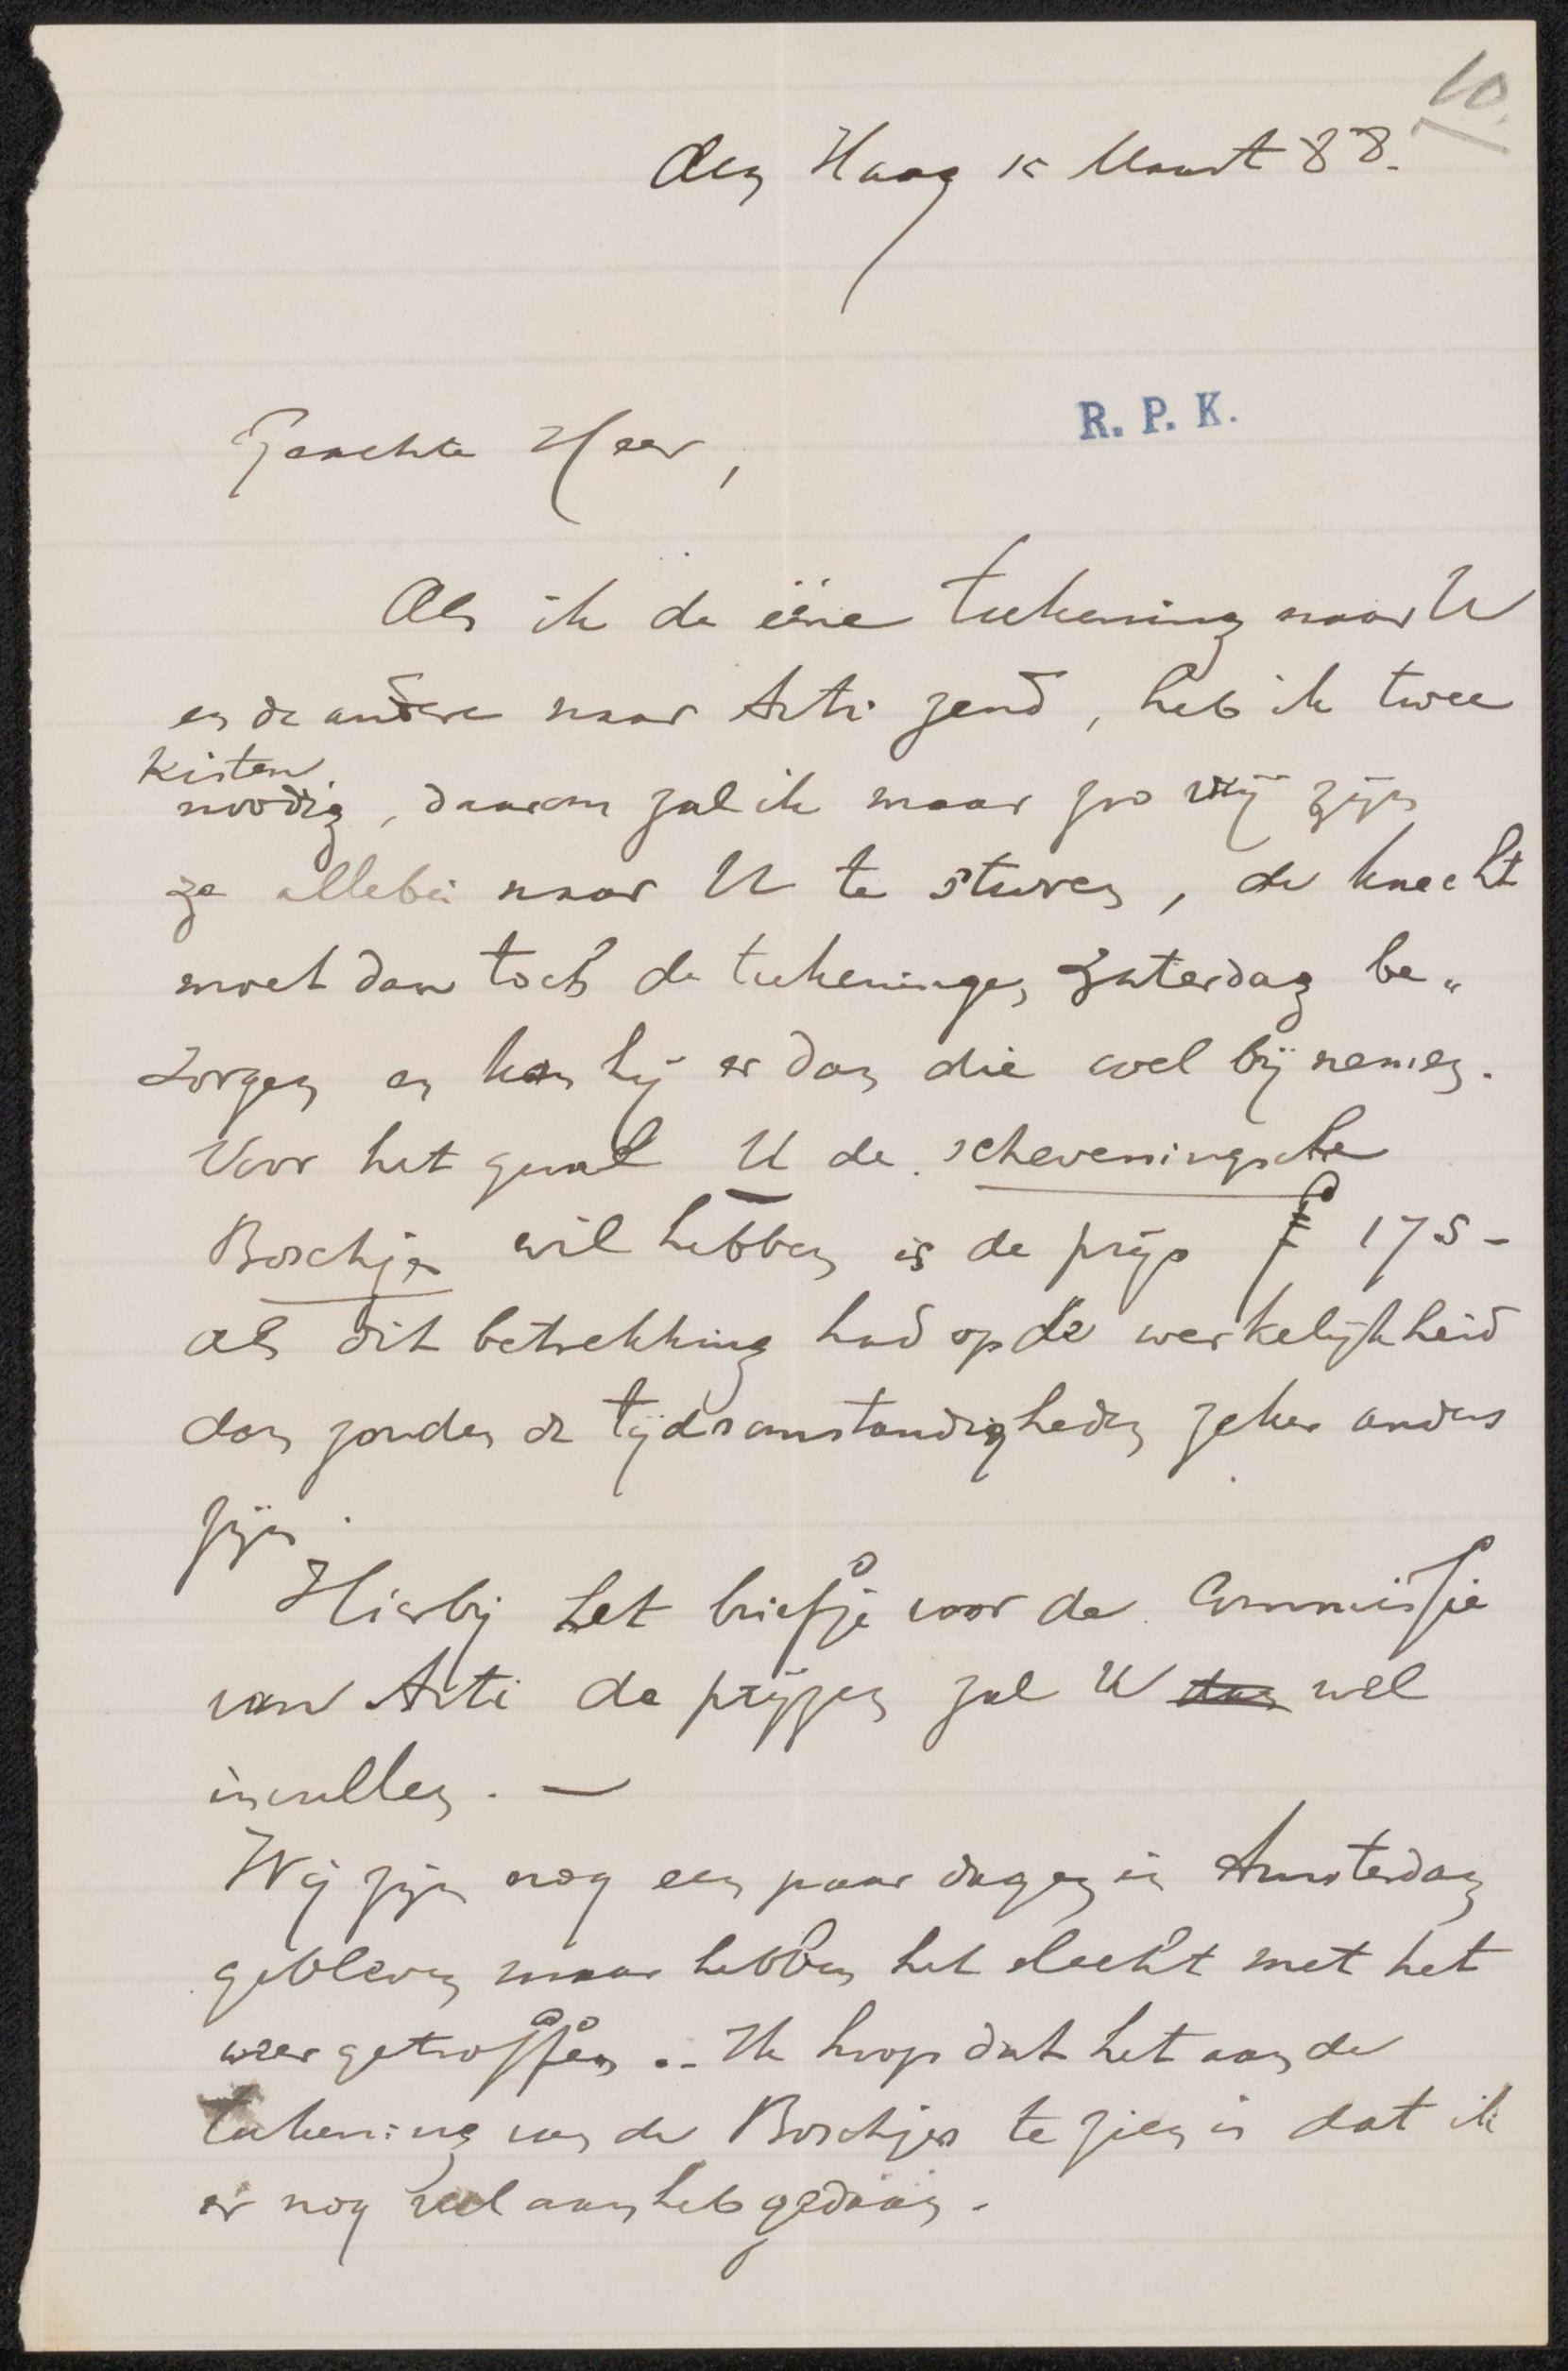 10.
den Haag 15 Maart 88.
R. P. K.
Geachte Heer,
Als ik de ééne teekening naar U
en de andere naar Arti zend, heb ik twee
kisten
noodig, daarom zal ik maar zoo vrij zijn
ze allebei naar U te sturen, de knecht
moet dan toch de teekeningen Zaterdag be„
zorgen en kan hij er dan die wel bij nemen.
Voor het geval U de scheveningsche
Boschjes wil hebben is de prijs ƒ 175-
als dit betrekking had op de werkelijkheid
dan zouden de tijdsomstandigheden zeker anders
zijn.
Hierbij het briefje voor de Commissie
van Arti de prijzen zal U dan wel
invullen. —
Wij zijn nog een paar dagen in Amsterdam
gebleven maar hebben het slecht met het
weer getroffen .- Ik hoop dat het aan de
teekening van de Boschjes te zien is dat ik
er nog veel aan heb gedaan.